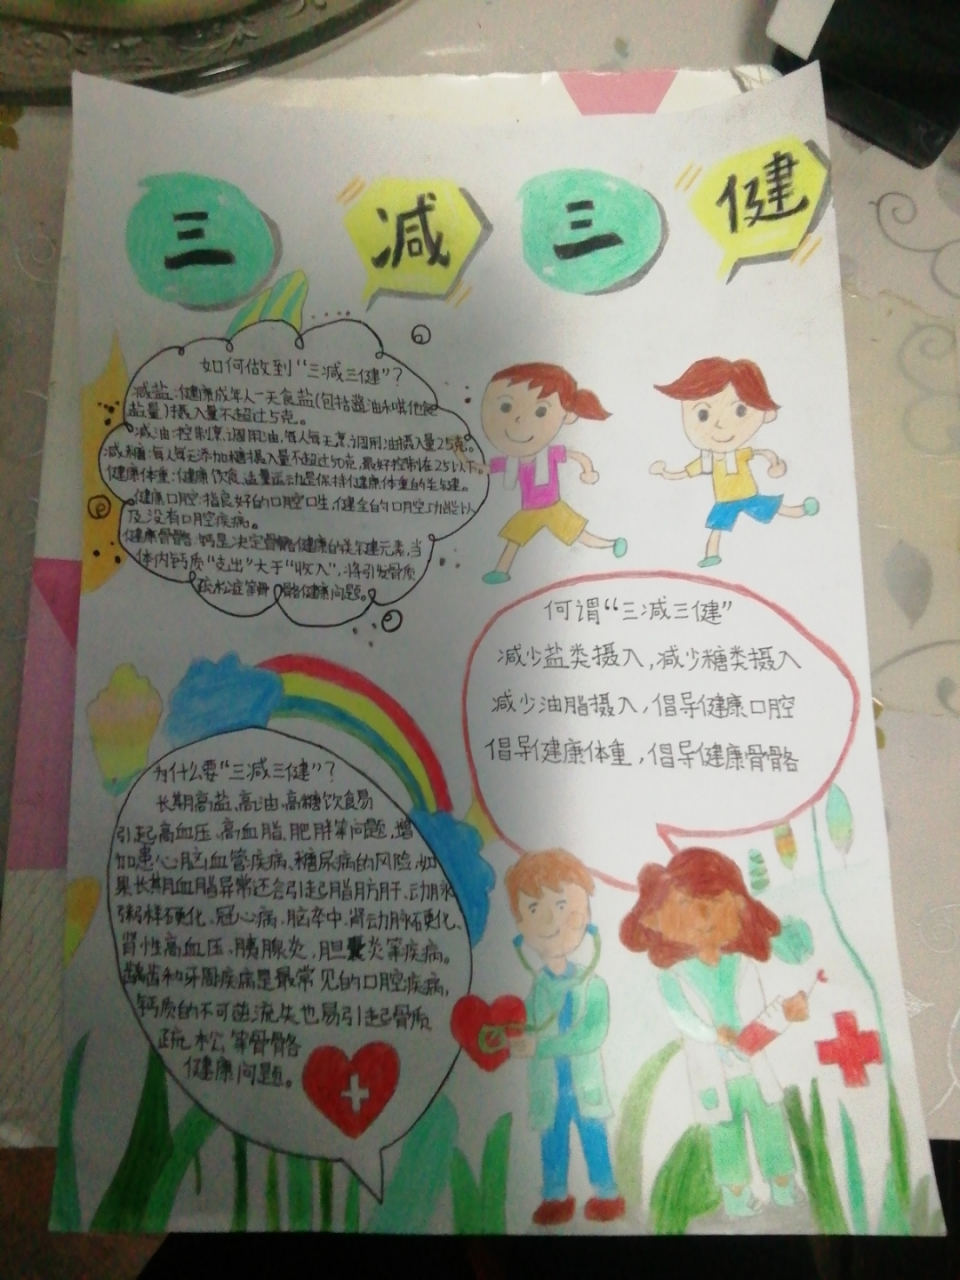 三减三健
如何做到“三减三健”？
减盐：健康成年人一天食盐（包括酱油和其他食
盐量）摄入量不超过5克。
减油：控制烹调用油，每人每天烹调用油摄入量25克。
减糖：每人每天添加糖摄入量不超过50克，最好控制在25以下。
健康体重：健康饮食，适量运动是保持健康体重的关键。
健康口腔：指良好的口腔卫生，健全的口腔功能以
及没有口腔疾病。
健康骨骼：钙是决定骨骼健康的关键元素，当
体内钙质“支出”大于“收入”，将引发骨质
疏松症等骨骼健康问题。
何谓“三减三健”
减少盐类摄入，减少糖类摄入
减少油脂摄入，倡导健康口腔
倡导健康体重，倡导健康骨骼
为什么要“三减三健”？
长期高盐、高油、高糖饮食易
引起高血压、高血脂、肥胖等问题，增
加患心脑血管疾病、糖尿病的风险，如
果长期血脂异常还会引起脂肪肝、动脉
粥样硬化、冠心病、脑卒中、肾动脉硬化、
肾性高血压、胰腺炎、胆囊炎等疾病。
龋齿和牙周疾病是最常见的口腔疾病，
钙质的不可逆流失也易引起骨质
疏松等骨骼
健康问题。